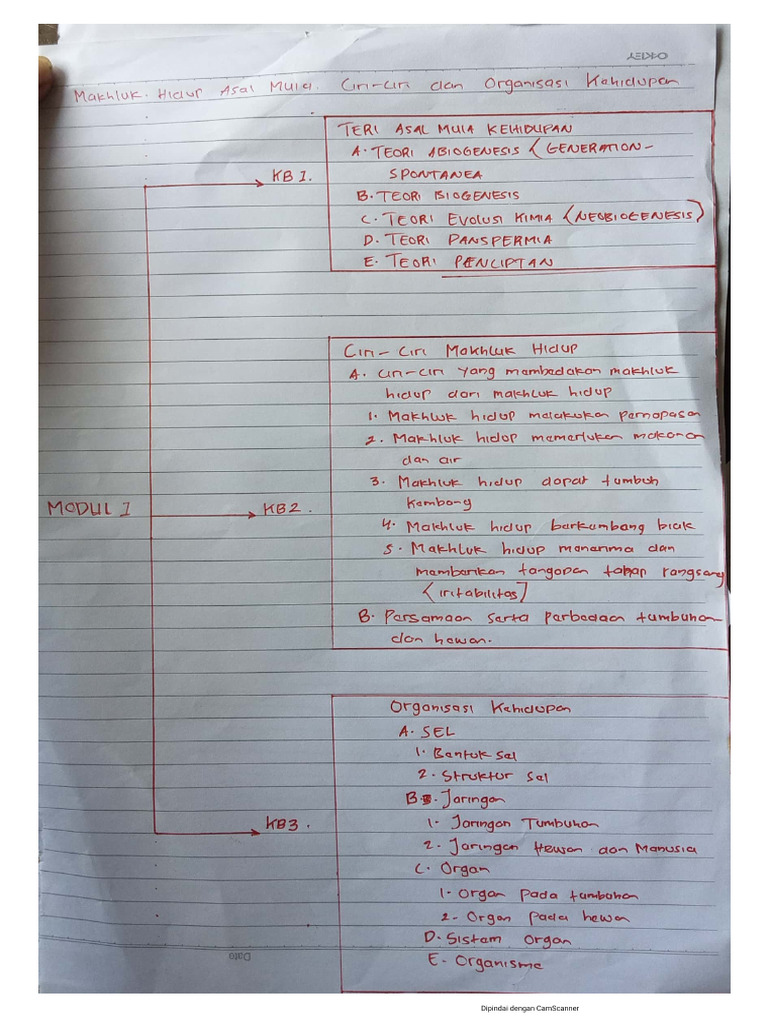 OAKLEY
Makhluk Hidup Asal Mula. Ciri-Ciri dan Organisasi Kehidupan
TERI ASAL MULA KEHIDUPAN
A. TEORI ABIOGENESIS (GENERATION-
SPONTANEA
B. TEORI BIOGENESIS
C. TEORI EVOLUSI KIMIA (NEOBIOGENESIS)
D. TEORI PANSPERMIA
E. TEORI PENCIPTAN
KB 1.
Ciri-Ciri Makhluk Hidup
A. Ciri-ciri yang membedakan makhluk
hidup dari makhluk hidup
1. Makhluk hidup melakukan pernapasan
2. Makhluk hidup memerlukan makanan
dan air
3. Makhluk hidup dapat tumbuh
kembang
4. Makhluk hidup berkembang biak
5. Makhluk hidup menerima dan
memberikan tangapan tahap rangsang
(iritabilitas)
B. Persamaan serta perbedaan tumbuhan
dan hewan.
MODUL 1
KB2.
Organisasi Kehidupan
A. SEL
1. Bentuk sel
2. Struktur sel
B. Jaringan
1. Jaringan Tumbuhan
2. Jaringan Hewan dan Manusia
C. Organ
1. Organ pada tumbuhan
2. Organ pada hewan
D. Sistem organ
E. Organisme
KB3.
Date
Dipindai dengan CamScanner